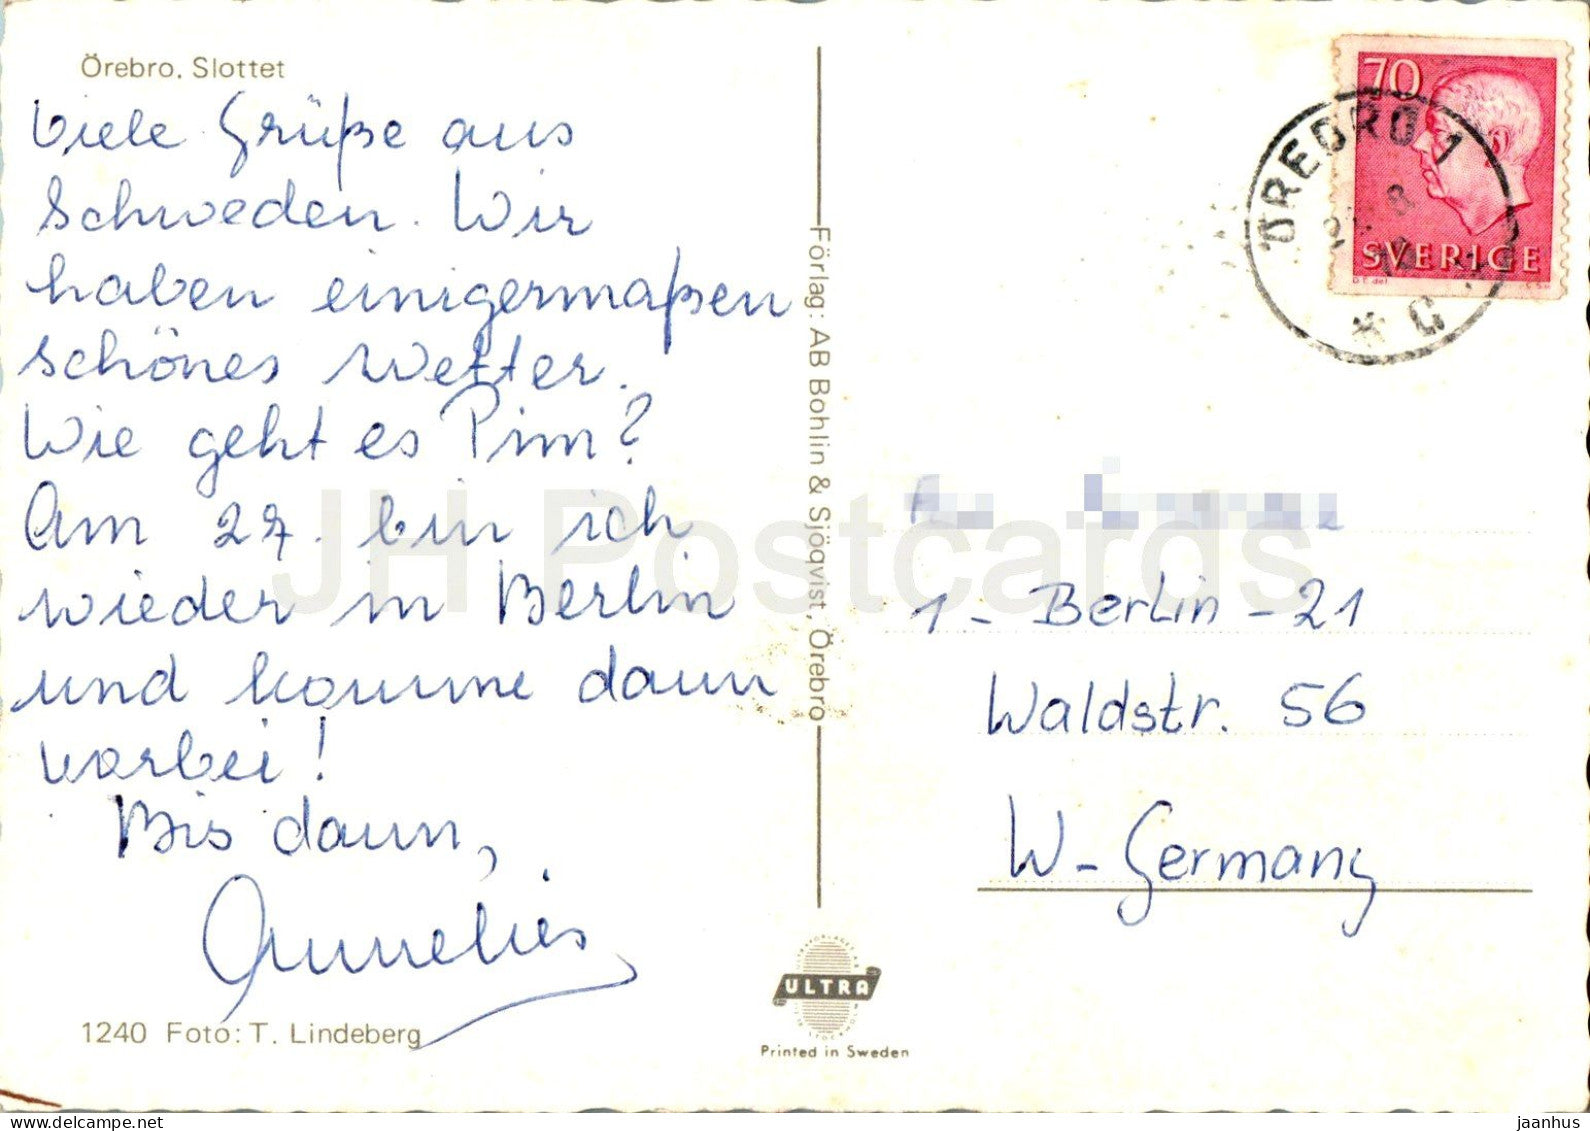 Örebro. Slottet
Viele Grüße aus
Schweden. Wir
haben einigermaßen
schönes Wetter.
Wie geht es Pim?
Am 27. bin ich
wieder in Berlin
und komme dann
vorbei!
Bis dann,
Annelies
1240 Foto: T. Lindeberg
Förlag: AB Bohlin & Sjöqvist, Örebro
ULTRA
Printed in Sweden
70
SVERIGE
ÖREBRO 1
1 - Berlin - 21
Waldstr. 56
W - Germany
JH Postcards
jaanhus
delcampe.net